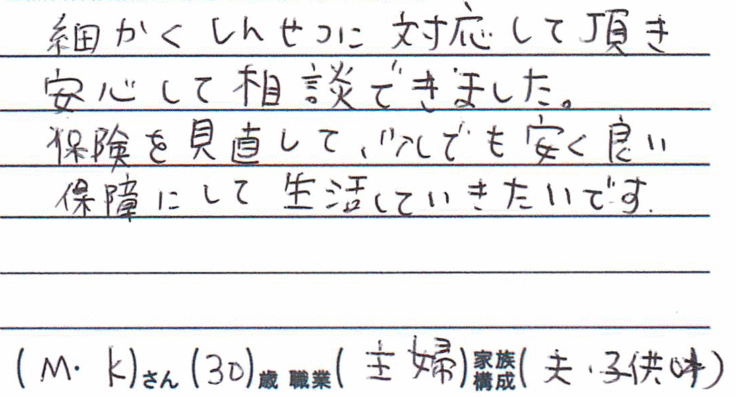 細かくしんせつに対応して頂き
安心して相談できました。
保険を見直して、少しでも安く良い
保障にして生活していきたいです.
(M・K)さん(30)歳 職業(主婦)家族構成(夫・子供)